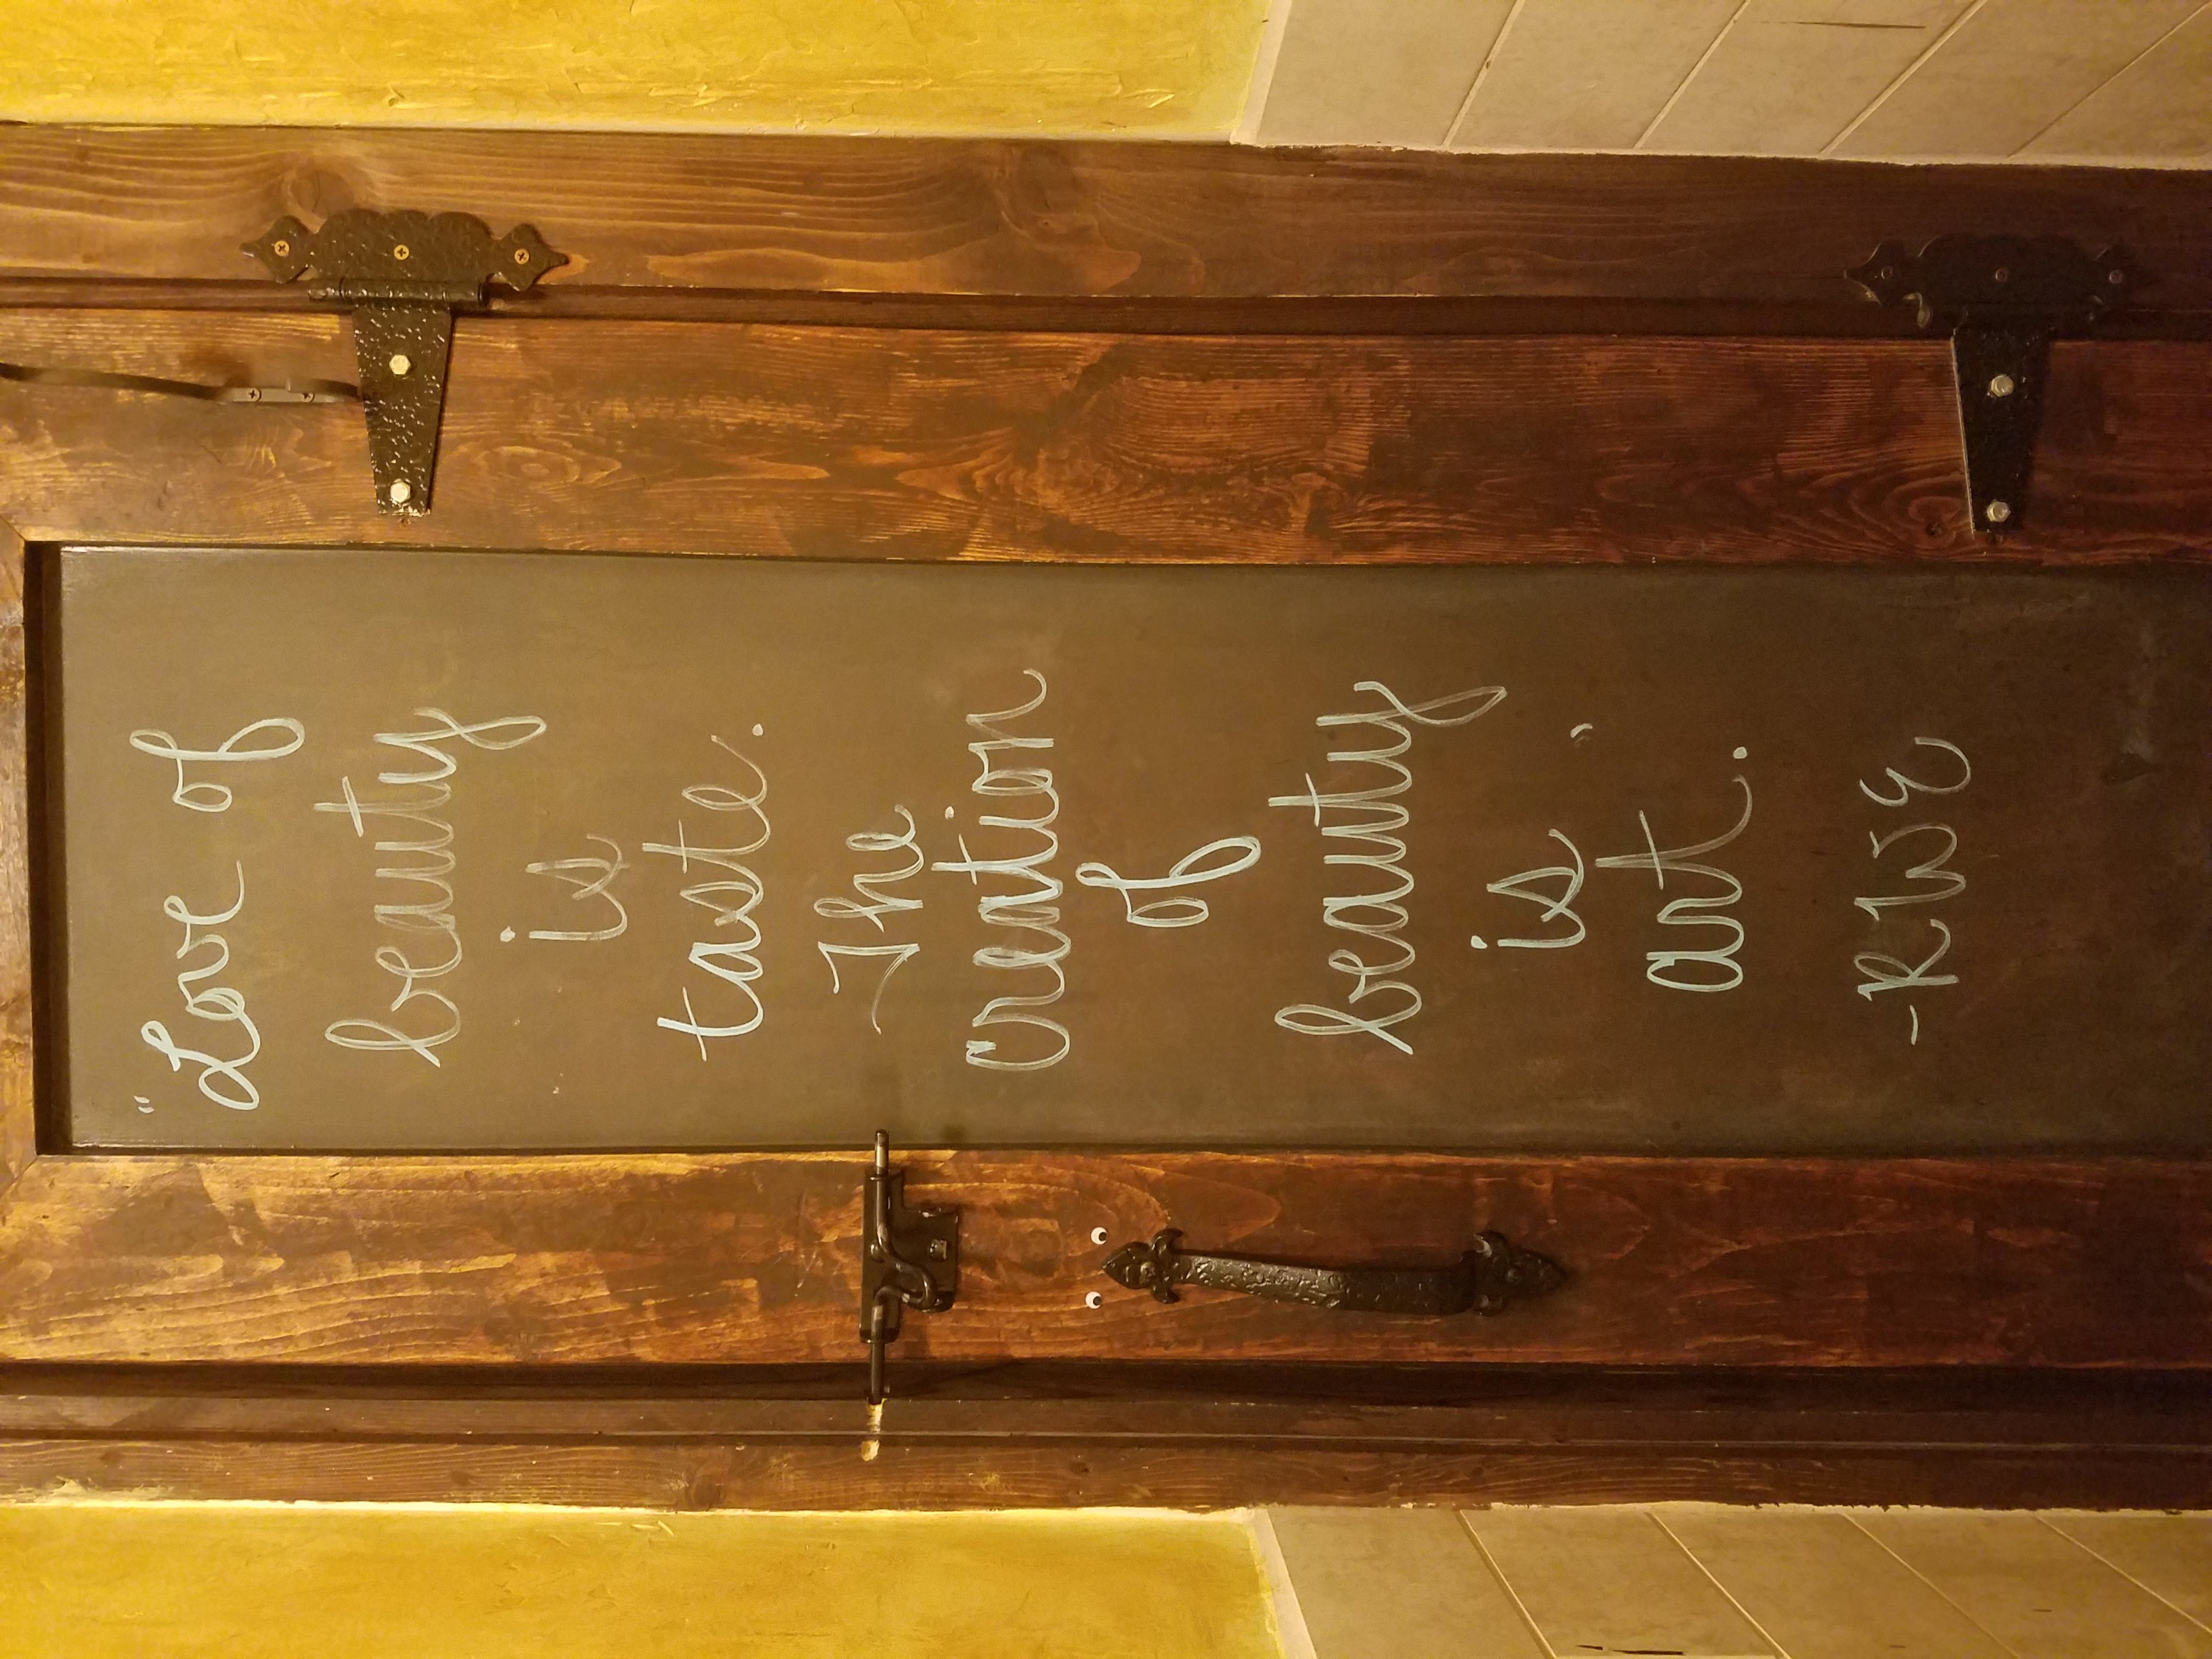 "Love of
beauty
is
taste.
The
creation
of
beauty
is
art.
-RWE